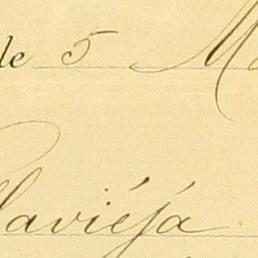 le 5 M
laviéja